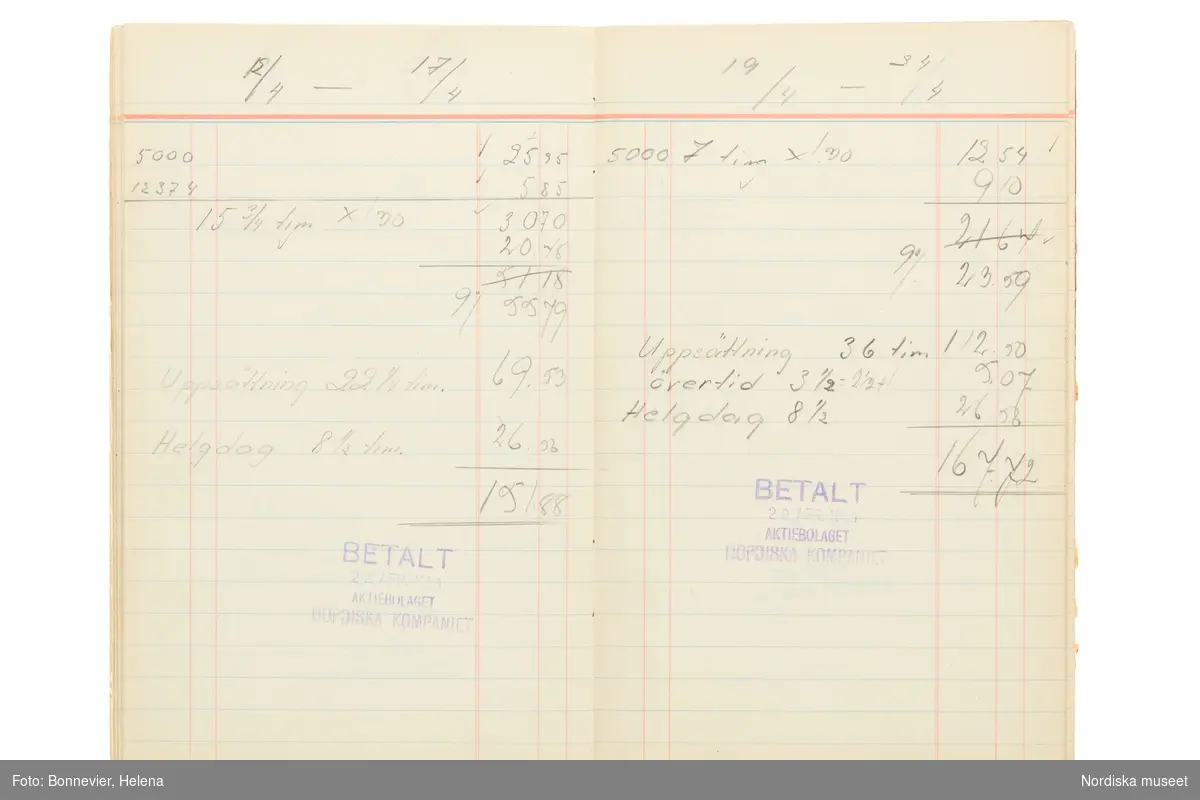 12/4 — 17/4
5000 25 95
12374 5 85
15 3/4 tim × 1 30 30 70
20 48
51 18
9% 55 79
Uppsättning 22 1/4 tim. 69.53
Helgdag 8 1/2 tim. 26.56
151.88
BETALT
AKTIEBOLAGET
NORDISKA KOMPANIET
19/4 — 24/4
5000 7 tim × 1 30 12 54
9 10
21 64
9% 23.59
Uppsättning 36 tim 112.50
övertid 3 1/2 5.07
Helgdag 8 1/2 26 56
167.72
BETALT
AKTIEBOLAGET
NORDISKA KOMPANIET
Foto: Bonnevier, Helena
Nordiska museet